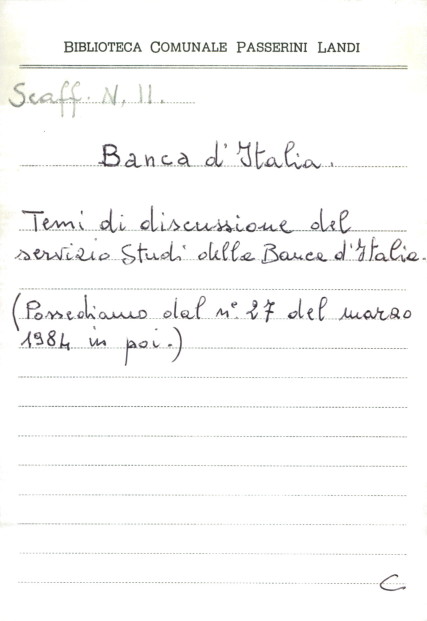 BIBLIOTECA COMUNALE PASSERINI LANDI
Scaff. N. 11.
Banca d'Italia.
Temi di discussione del
servizio Studi della Banca d'Italia.
(Possediamo dal n° 27 del marzo
1984 in poi.)
C